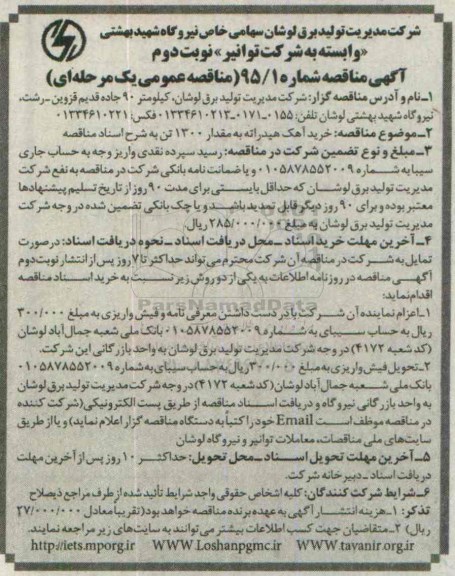 شرکت مدیریت تولید برق لوشان سهامی خاص نیروگاه شهید بهشتی
«وابسته به شرکت توانیر» نوبت دوم
آگهی مناقصه شماره ۹۵/۱ (مناقصه عمومی یک مرحله‌ای)
۱ـ نام و آدرس مناقصه گزار: شرکت مدیریت تولید برق لوشان، کیلومتر ۹۰ جاده قدیم قزوین ـ رشت،
نیروگاه شهید بهشتی لوشان تلفن: ۰۱۵۵ـ۰۱۷۱ـ۰۱۳۳۴۶۱۰۲۱۳ فکس: ۰۱۳۳۴۶۱۰۲۲۱
۲ـ موضوع مناقصه: خرید آهک هیدراته به مقدار ۱۳۰۰ تن به شرح اسناد مناقصه
۳ـ مبلغ و نوع تضمین شرکت در مناقصه: رسید سپرده نقدی واریز وجه به حساب جاری
سیبا به شماره ۰۱۰۵۸۷۸۵۵۲۰۰۹ و یا ضمانت نامه بانکی شرکت در مناقصه به نفع شرکت
مدیریت تولید برق لوشان که حداقل بایستی برای مدت ۹۰ روز از تاریخ تسلیم پیشنهادها
معتبر بوده و برای ۹۰ روز دیگر قابل تمدید باشد و یا چک بانکی تضمین شده در وجه شرکت
مدیریت تولید برق لوشان به مبلغ ۲۸۵/۰۰۰/۰۰۰ ریال.
۴ـ آخرین مهلت خرید اسناد ـ محل دریافت اسناد ـ نحوه دریافت اسناد: در صورت
تمایل به شرکت در مناقصه آن شرکت محترم می‌تواند حداکثر تا ۷ روز پس از انتشار نوبت دوم
آگهی مناقصه در روزنامه اطلاعات به یکی از دو روش زیر نسبت به خرید اسناد مناقصه
اقدام نماید:
۱ـ اعزام نماینده آن شرکت با در دست داشتن معرفی نامه و فیش واریزی به مبلغ ۳۰۰/۰۰۰
ریال به حساب سیبای به شماره ۰۱۰۵۸۷۸۵۵۲۰۰۹ بانک ملی شعبه جمال‌آباد لوشان
(کد شعبه ۴۱۷۲) در وجه شرکت مدیریت تولید برق لوشان به واحد بازرگانی این شرکت.
۲ـ تحویل فیش واریزی به مبلغ ۳۰۰/۰۰۰ ریال به حساب سیبای به شماره ۰۱۰۵۸۷۸۵۵۲۰۰۹
بانک ملی شعبه جمال‌آباد لوشان (کد شعبه ۴۱۷۲) در وجه شرکت مدیریت تولید برق لوشان
به واحد بازرگانی نیروگاه و دریافت اسناد مناقصه از طریق پست الکترونیکی (شرکت کننده
در مناقصه موظف است Email خود را کتباً به دستگاه مناقصه گزار اعلام نماید) و یا از طریق
سایت‌های ملی مناقصات، معاملات توانیر و نیروگاه لوشان
۵ـ آخرین مهلت تحویل اسناد ـ محل تحویل: حداکثر ۱۰ روز پس از آخرین مهلت
دریافت اسناد ـ دبیرخانه شرکت.
۶ـ شرایط شرکت کنندگان: کلیه اشخاص حقوقی واجد شرایط تأئید شده از طرف مراجع ذیصلاح
تذکر: ۱ـ هزینه انتشار آگهی به عهده برنده مناقصه خواهد بود (تقریبا معادل ۲۷/۰۰۰/۰۰۰
ریال) ۲ـ متقاضیان جهت کسب اطلاعات بیشتر می‌توانند به سایت‌های زیر مراجعه نمایند.
http://iets.mporg.ir WWW.Loshanpgmc.ir WWW.tavanir.org.ir
ParsNamadData